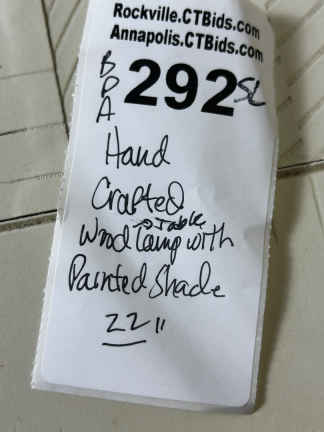 Rockville.CTBids.com
Annapolis.CTBids.com
BDA
292 SL
Hand
Crafted
Table
Wood Lamp with
Painted Shade
22"